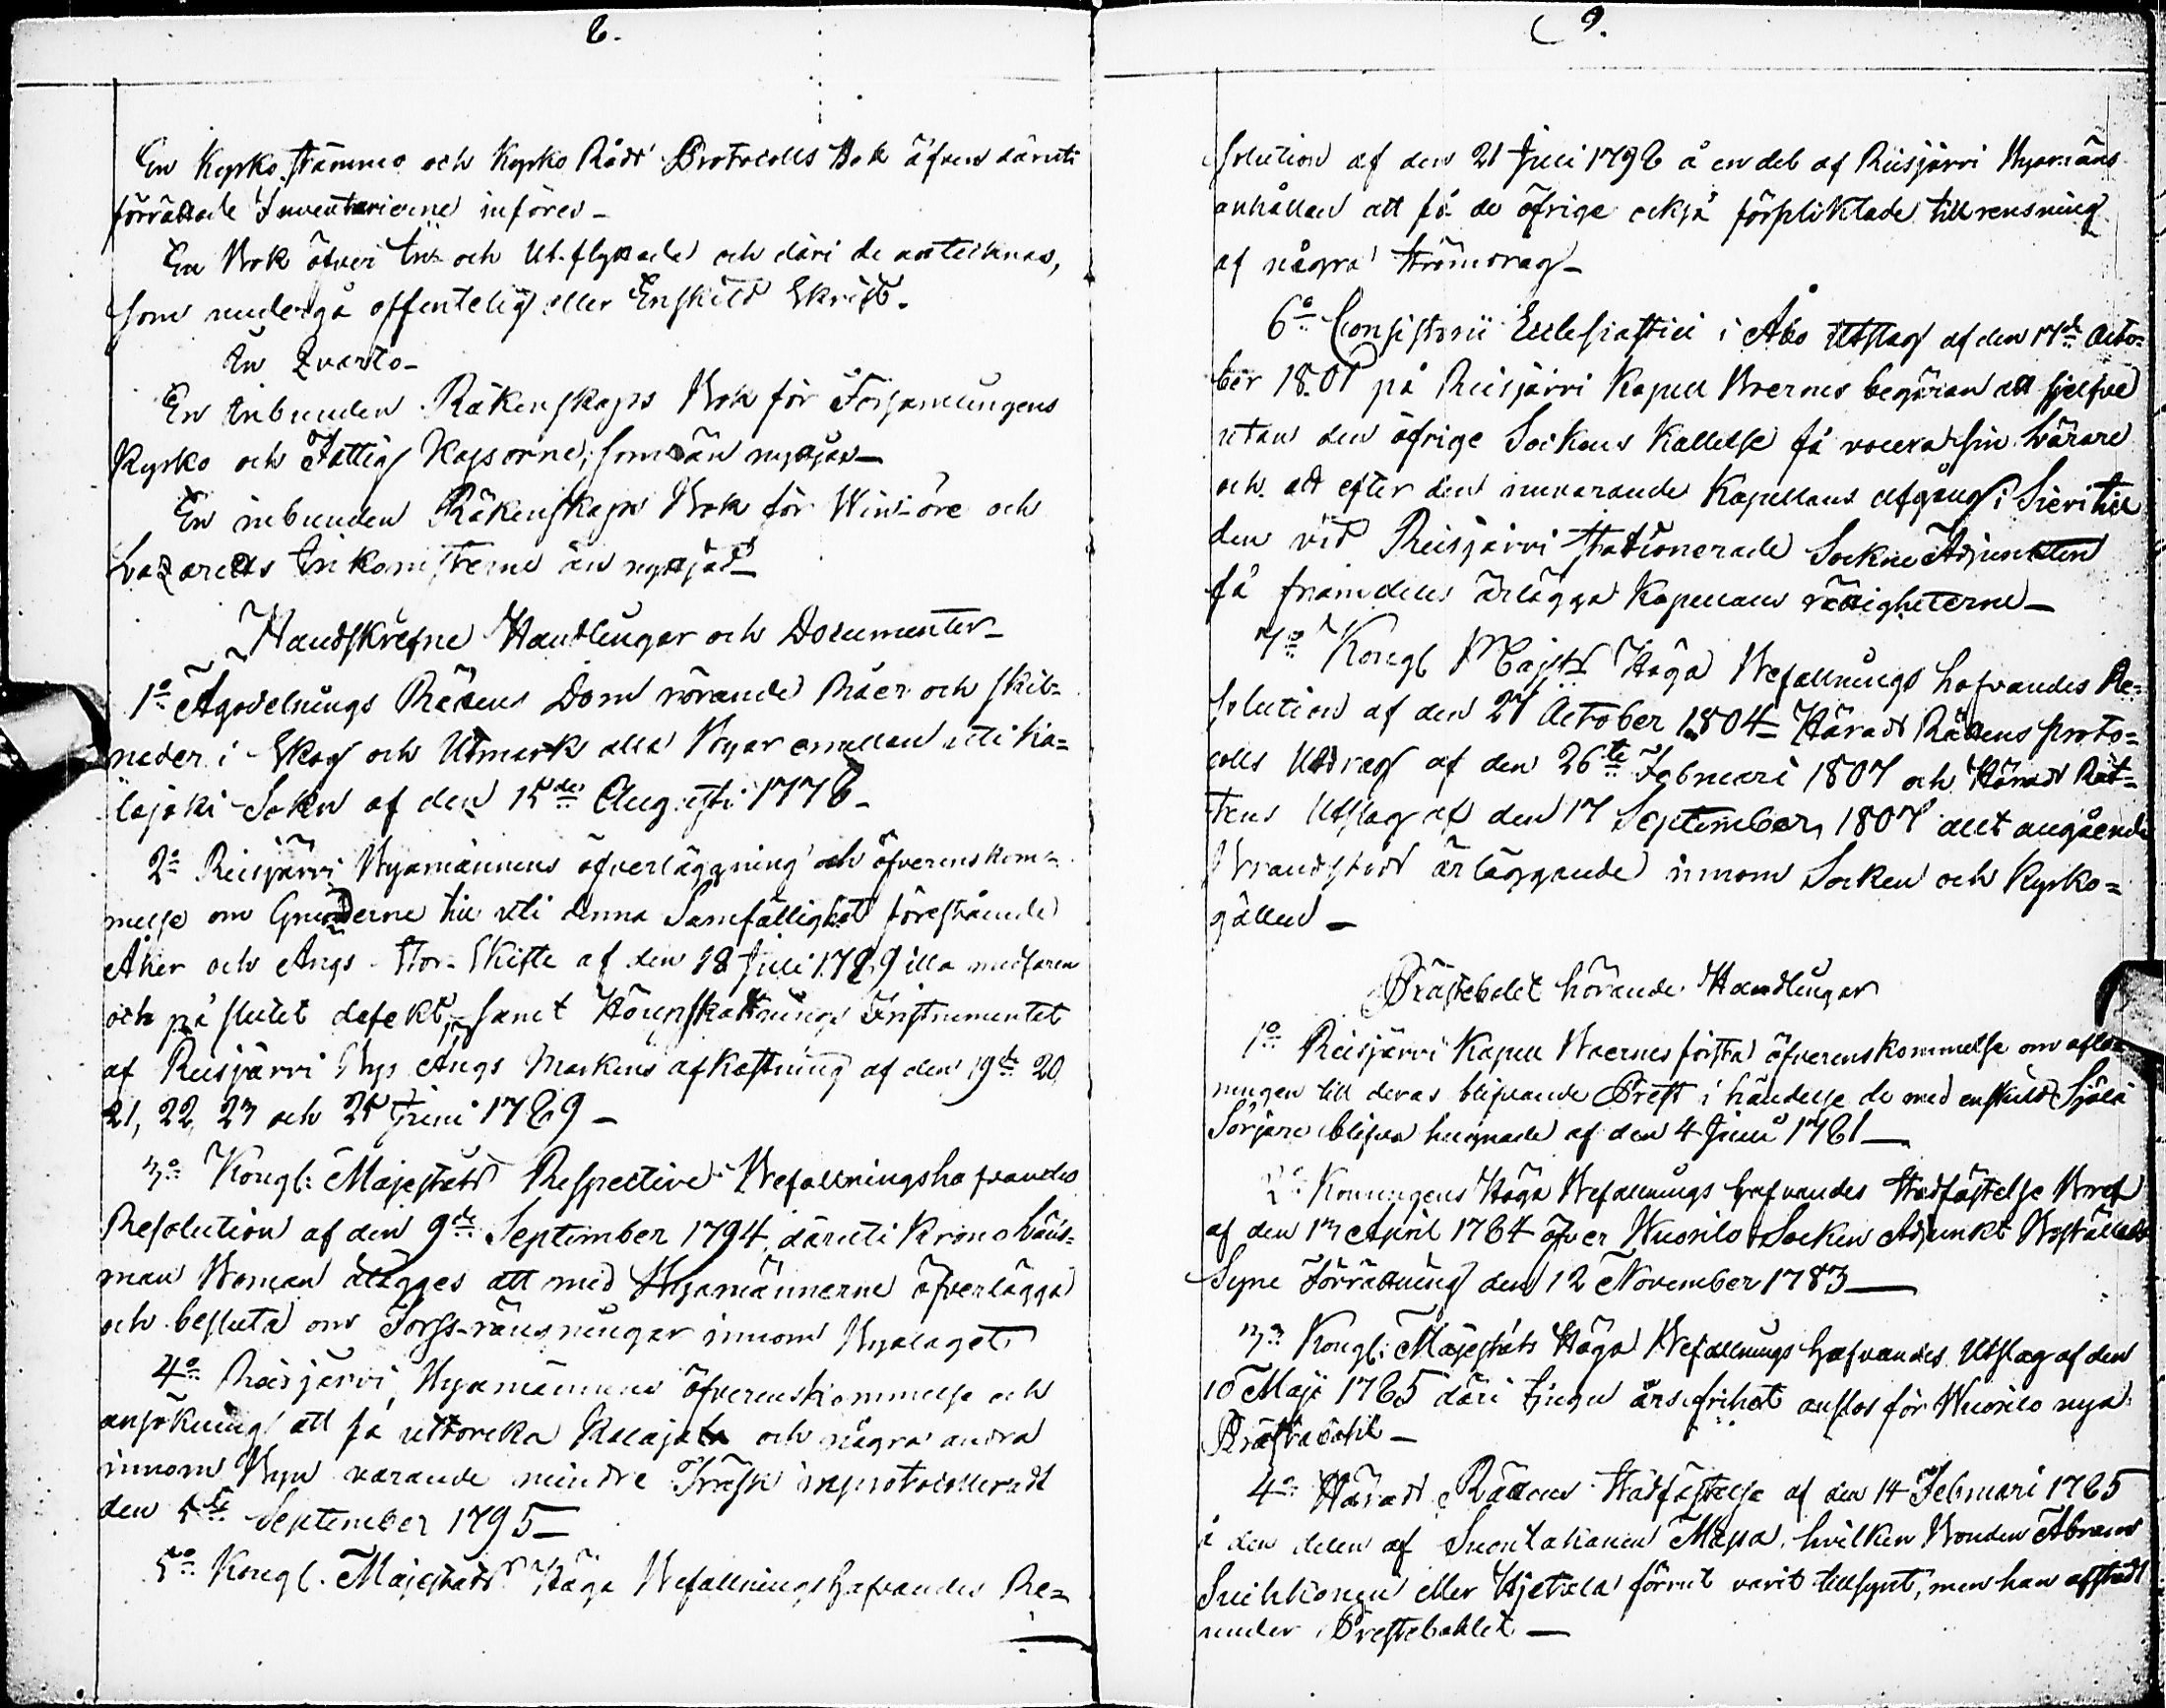 8.
En Kyrko stämmo och Kyrko Råds Protocolls Bok äfven däruti
förrättade Inventarierne införes -
En Bok öfver In- och Ut-flyttade och däri de antecknas,
som undergå offentelig eller Enskild Skrift.
In Quarto -
En inbunden Räkenskaps Bok för Församlingens
Kyrko och Fattig Kassorne, som än nyttjas -
En inbunden Räkenskaps Bok för Vin-öre och
Lazaretts Inkomsterne än nyttjad -
Handskrefne Handlingar och Documenter -
1o Ägodelnings Rättens Dom rörande Råer och skil-
nader i Skog och Utmark alla Byar emellan uti Ka-
lajoki Sokn af den 15de Augusti 1778 -
2o Reisjärvi Byamännens öfverläggning och öfverenskom-
melse om Grunderne till uti denna Samfällighet förestående
Åker och Ängs Stor-Skifte af den 18 Juli 1789 illa medfaren
och på slutet defekt, samt Höuppskattnings Instrumentet
af Reisjärvi Bys Ängs Markens afkastning af den 19de 20
21, 22, 23 och 25 Juni 1789 -
3o Kongl: Majestäts Respective Befallningshafvandes
Resolution af den 9de September 1794, däruti Krono Läns-
man Boman ålägges att med Byamännerne öfverlägga
och besluta om Forss-ränsningar innom Byalaget
4o Reisjärvi Byamännens öfverenskommelse och
ansökning att få uttorcka Kalaja och några andra
innom Byn varande mindre Träsk inprotocolleradt
den 5te September 1795 -
5o Kongl. Majestäts Höga Befallningshafvandes Re-
9.
solution af den 21 Juli 1798 å en del af Reisjärvi Byamäns
anhållan att få de öfrige också förpliktade till rensning
af några strömdrag -
6o Consistorii Ecclesiastici i Åbo Utslag af den 17de Octo-
ber 1801 på Reisjärvi Kapell Boernes begäran att sjelfve
utan den öfrige Sockens Kallelse få vocera sin Lärare
och att efter den nuvarande Kapellans afgång i Sievi till
den vid Reisjärvi stationerade Sockne Adjuncten
få framdeles ärlägga Kapellans rättigheterne -
7o Kongl Majsts Höga Befallnings hafvandes Re-
solution af den 27 October 1804 - Härads Rättens proto-
colls Utdrag af den 26te Februari 1807 och Härads Rät-
tens Utslag af den 17 September 1807 allt angående
Brandstods ärläggande innom Socken och Kyrko-
gällen -
Prästebolet hörande Handlingar
1o Reisjärvi Kapell Boernes första öfverenskommelse om aflö-
ningen till deras blifvande Prest i händelse de med enskild Själa
Sörjare blifva hugnade af den 4 Junii 1761 -
2o Konungens Höga Befallnings hafvandes Stadfästelse Bref
af den 17 April 1764 öfver Wuorilo Socken Adjunkt Boställets
Syne Förrättning den 12 November 1763 -
3o Kongl: Majestäts Höga Befallnings hafvandes Utslag af den
10 Maji 1765 däri tjugu års frihet anslos för Wuorilo nya
Prästabohl -
4o Härads Rättens Stadfästelse af den 14 Februari 1765
å den delen af Suontakanen Maja, hvilken Bonden Abram
Suikkonen eller Hjetala förrut varit tillsynt, men han afstådt
under Prestebohlet -